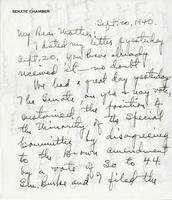 SENATE CHAMBER
Sept. 20, 1940.
My Dear Mother:
I dated my letter yesterday
Sept. 20, you have already
received it no doubt
We had a great day yesterday
The Senate, on yea & nay vote,
sustained the position of
the Minority of the Special
Committee by disagreeing
to the Brown amendment
by a vote of 30 to 44.
Sen. Burke and I filed the